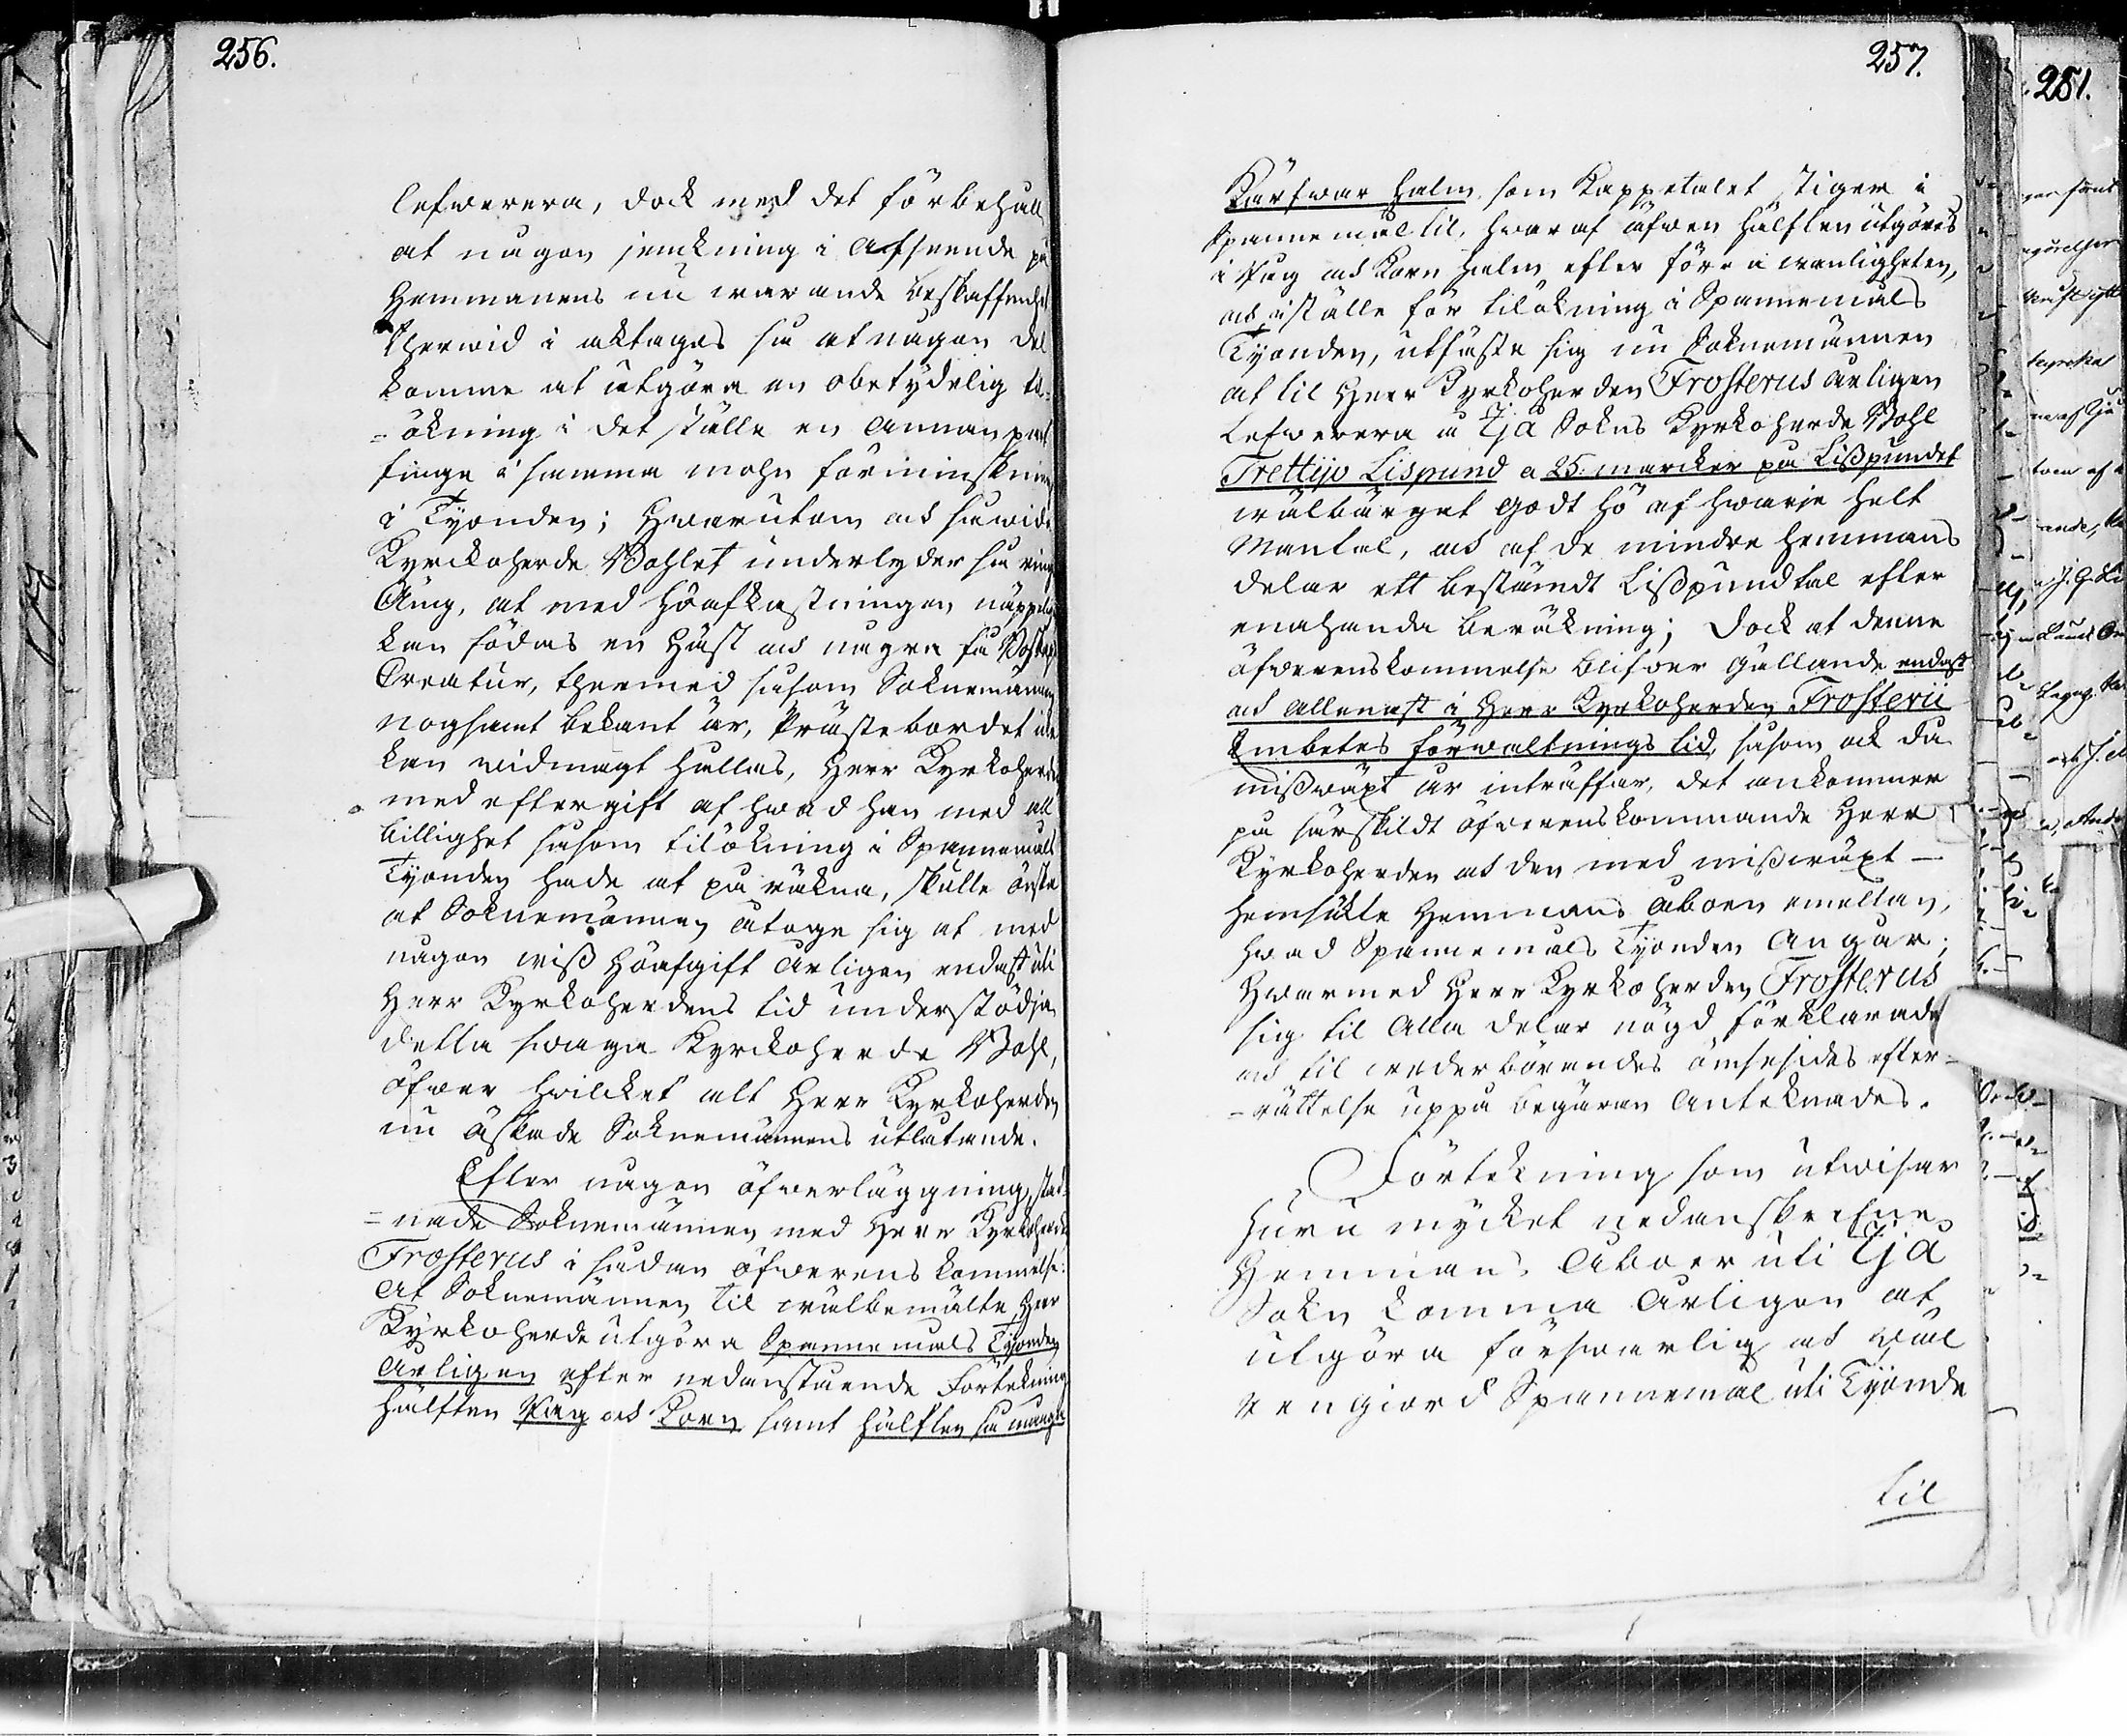 256.
lefwerera, dock med det förbehåll
at någon jemkning i afseende på
Hemmanens nu warande beskaffenhet
therwid i akttages så at någon del
komme at utgöra en obetydelig til-
=ökning i det ställe en annan part
finge i samma mohn förminskning
i Tyonden; Hwarutom ock såwida
Kyrckoherde Bohlet underlyder så ringa
Äng, at med höafkastningen näppelig
kan födas en Häst och några få Boskaps
Creatur, thermed såsom Soknemännen
nogsamt bekant är, Prästebordet icke
kan widmagt hållas, Herr Kyrkoherden
med eftergift af hwad han med all
billighet såsom tilökning i Spannemåls
Tyonden hade at på räkna, skulle önska
at Soknemännen åtoge sig at med
någon wiss höafgift årligen endast uti
Herr Kyrkoherdens tid understödja
detta swaga Kyrckoherde Bohl,
öfwer hwilcket alt Herr Kyrkoherden
nu äskade Soknemännens utlåtande.
Efter någon öfwerläggning, stad-
=nade Soknemännen med Herr Kyrkoherden
Frosterus i sådan öfwerenskommelse:
At Soknemännen til wälbemälte Herr
Kyrkoherde utgöra Spannemåls Tyonden
årligen efter nedanstående Förtekning
hälften Råg och Korn samt hälften så många
257.
Kärfwar halm, som Kappetalet stiger i
Spannemål til, hwaraf äfwen hälften utgöres
i Råg och Korn halm efter förra wanligheten,
och i stället för tilökning i Spannemåls
Tyonden, utfäste sig nu Soknemännen
at til Herr Kyrkoherden Frosterus årligen
Lefwerera å Ijå Sokns Kyrkoherde Bohl
Trettijo Lispund a 25: marcker på Lisspundet
wälbärgat godt hö af hwarje helt
Mantal, och af de mindre hemmans
delar ett bestämdt Lisspundtal efter
enahanda beräkning; dock at denne
öfwerenskommelse blifwer gällande endast
och allenast i Herr Kyrkoherden Frosterii
Embetes förwaltnings tid, såsom ock då
misswäxt år inträffar, det ankommer
på särskildt öfwerenskommande Herr
Kyrkoherden och den med misswäxt —
hemsökte Hemmans åboen emellan,
hwad Spannemåls Tyonden angår;
Hwarmed Herr Kyrkoherden Frosterus
sig til alla delar nögd förklarade
och til wederbörandes ömsesides efter-
-rättelse uppå begäran antecknades.
Förtekning som utwisar
huru mycket nedanskrefne
Hemmans åboer uti Ijå
Sokn komma årligen at
utgöra förswarlig och wäl
rengiord Spannemål uti Tyonde
til
281.